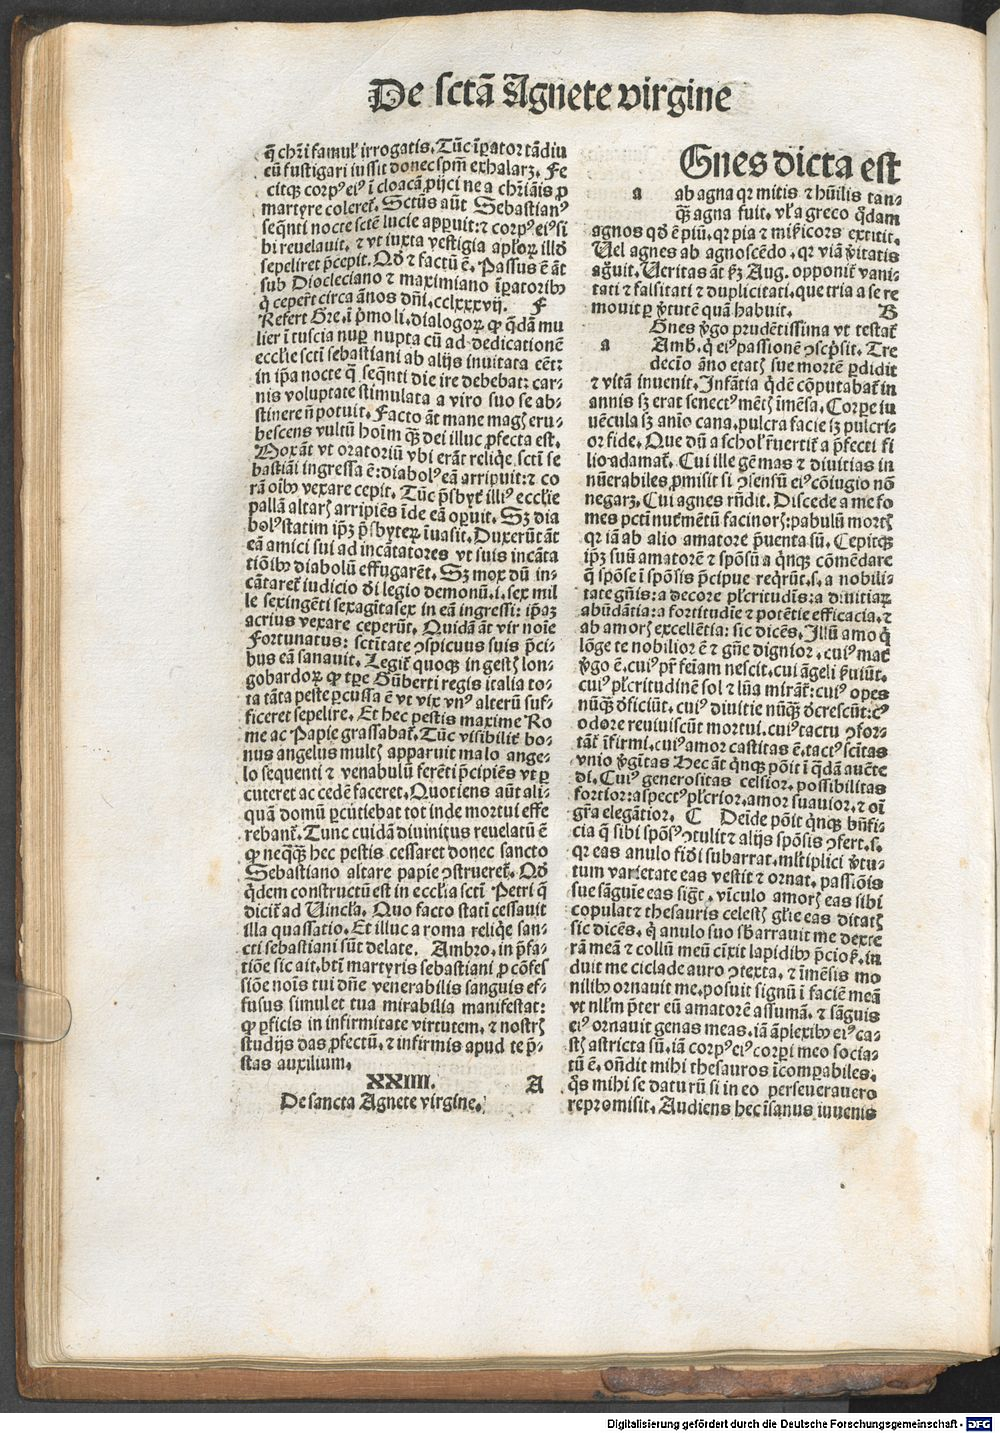 De sctā Agnete virgine
q̄ chr̄i famul' irrogatis. Tūc īpator tādiu
eū fustigari iussit donec spm̄ exhalarꝫ. Fe
citqꝫ corpꝰ eiꝰ ī cloacā ꝓijci ne a chr̄iāis ꝓ
martyre coleret᷑. Sctūs aūt Sebastianꝰ
seqn̄ti nocte scte̅ lucie apꝑuit: ⁊ corpꝰ eiꝰ si
bi reuelauit. ⁊ vt iuxta vestigia apl'oꝝ illd̄
sepeliret p̄cepit. Qd̄ ⁊ factū ē. Passus ē āt
sub Diocleciano ⁊ maximiano īꝑatoribꝰ
q̇ ceper̄t circa ānos dn̄i. cclxxxvij. F
Refert Gre. ī p̄mo li. dialogoꝝ ꝙ q̄dā mu
lier ī tuscia nuꝑ nupta cū ad dedicationē
eccl'ie scti̅ sebastiani ab alijs inuitata ee̅t:
in ip̄a nocte q̄ seqn̄ti die ire debebat: car-
nis voluptate stimulata a viro suo se ab-
stinere n̄ potuit. Facto āt mane magꝭ eru-
bescens vultū hoīm qꝫ dei illuc ꝓfecta est.
Mox āt vt oratoriū vbi erāt reliqe̅ scti̅ se
bastiāi ingressa ē: diabolꝰ eā arripuit: ⁊ co
rā oībꝰ vexare cepit. Tūc p̄sbyt᷑ illiꝰ eccl'ie
pallā altarꝭ arripiēs īde eā oꝑuit. Sꝫ dia
bolꝰ statim ip̄ꝫ p̄sbyteꝝ īuasit. Duxerūt āt
eā amici sui ad incātatores vt suis incāta
tiōibꝰ diabolū effugarēt. Sꝫ mox dū in-
cātaret᷑ iudicio di̅ legio demonū. i. sex mil
le sexingēti sexagītasex in eā ingressi: ip̄aꝫ
acrius vexare ceperūt. Quidā āt vir noīe
Fortunatus: sctītate ꝯspicuus suis p̄ci-
bus eā sanauit. Legit᷑ quoqꝫ in gestꝭ lon-
gobardoꝝ ꝙ tꝑe Gūberti regis italia to-
ta tāta peste ꝑcussa ē vt vix vnꝰ alterū suf-
ficeret sepelire. Et hec pestis maxime Ro
me ac Papie grassabat᷑. Tūc visibilit᷑ bo-
nus angelus multꝭ apparuit malo ange-
lo sequenti ⁊ venabulū ferēti p̄cipiēs vt ꝑ
cuteret ac cedē faceret. Quotiens aūt ali-
quā domū ꝑcutiebat tot inde mortui effe
rebant᷑. Tunc cuidā diuinitus reuelatū ē
ꝙ neqꝫqꝫ hec pestis cessaret donec sancto
Sebastiano altare papie ꝯstrueret᷑. Qd̄
q̄dem constructū est in eccl'ia scti̅ Petri q̄
dicit᷑ ad Uincl'a. Quo facto stati̅ cessauit
illa quassatio. Et illuc a roma reliqe̅ san-
cti sebastiani sūt delate. Ambro. in p̄fa-
tiōe sic ait. bti̅ martyris sebastiani ꝓ cōfes
siōe noīs tui dn̄e venerabilis sanguis ef-
fusus simul et tua mirabilia manifestat:
ꝙ ꝑficis in infirmitate virtutem, ⁊ nostrꝭ
studijs das ꝓfectū, ⁊ infirmis apud te p̄-
stas auxilium.
XXIIII. A
De sancta Agnete virgine.
Gnes dicta est
a ab agna qꝛ mitis ⁊ hūilis tan-
qꝫ agna fuit. vl'a greco q̄dam
agnos qd̄ ē piū. qꝛ pia ⁊ mīcors extitit.
Uel agnes ab agnoscēdo. qꝛ viā v̄itatis
agūit. Ueritas āt ẜꝫ Aug. opponit᷑ vani-
tati ⁊ falsitati ⁊ duplicitati. que tria a se re
mouit ꝑ v̄tutē quā habuit. B
a Gnes v̄go prudētissima vt testat᷑
Amb. q̇ eiꝰ passionē ꝯscp̄sit. Tre
decīo āno etatꝭ sue mortē ꝑdidit
⁊ vitā inuenit. Infātia q̄dē cōputabat᷑ in
annis sꝫ erat senectꝰ mētꝭ īmēsa. Corꝑe iu
uēcula sꝫ anīo cana. pulcra facie sꝫ pulcri-
or fide. Que dū a schol' r̄uertit᷑ a p̄fecti fi
lio adamat᷑. Cui ille gēmas ⁊ diuitias in
nūerabiles ꝓmisit si ꝯsensū eiꝰ cōiugio nō
negarꝫ. Cui agnes rn̄dit. Discede a me fo
mes pcti̅ nutⁱmētū facinorꝭ: pabulū mortꝭ
qꝛ iā ab alio amatore p̄uenta sū. Cepitqꝫ
ip̄ꝫ suū amatorē ⁊ spōsū a q̇nqꝫ cōmēdare
q̄ spōse ī spōsis p̄cipue reqr̄ūt. s. a nobili-
tate gn̄is: a decore pl'critudīs: a diuitiaꝝ
abūdātia: a fortitudīe ⁊ potētie efficacia. ⁊
ab amorꝭ excellētia: sic dicēs. Illū amo q̇
lōge te nobilior ē ⁊ gn̄e dignior. cuiꝰ mat᷑
v̄go ē. cuiꝰ pr̄ feīam nescit. cui āgeli ẜuiūt.
cuiꝰ pl'critudinē sol ⁊ lūa mirāt᷑: cuiꝰ opes
nūqꝫ dēficiūt. cuiꝰ diuitie nūqꝫ dēcrescūt: cꝰ
odore reuiuiscūt mortui. cuiꝰ tactu ꝯfor-
tāt᷑ īfirmi. cuiꝰ amor castitas ē. tactꝰ scītas
vnio v̄gītas Hec āt q̇nqꝫ pōit ī q̄dā auctē
di. Cuiꝰ generositas celsior. possibilitas
fortior: aspectꝰ pl'crior. amor suauior. ⁊ oī
gr̄a elegātior. C Deīde pōit q̇nqꝫ bn̄fi-
cia q̄ sibi spōsꝰ ꝯtulit ⁊ alijs spōsis ꝯfert. s.
qꝛ eas anulo fidi̅ subarrat. ml'tiplici v̄tu-
tum varietate eas vestit ⁊ ornat. passiōis
sue sāguīe eas sigt᷑. vīculo amorꝭ eas sibi
copulat ⁊ thesauris celestꝭ gl'ie eas ditatꝭ
sic dicēs. q̇ anulo suo sb̄arrauit me dexte
rā meā ⁊ collū meū cīxit lapidibꝰ p̄ciosꝭ. in
duit me ciclade auro ꝯtexta. ⁊ īmēsis mo
nilibꝰ ornauit me. posuit signū ī faciē meā
vt nll'm p̄ter eū amatorē assumā. ⁊ sāguis
eiꝰ ornauit genas meas. iā āplexibꝰ eiꝰ ca-
stꝭ astricta sū. iā corpꝰ eiꝰ corꝑi meo socia-
tū ē. on̄dit mihi thesauros īcomꝑabiles.
qˢ mihi se daturū si in eo perseuerauero
repromisit. Audiens hec īsanus iuuenis
Digitalisierung gefördert durch die Deutsche Forschungsgemeinschaft - DFG